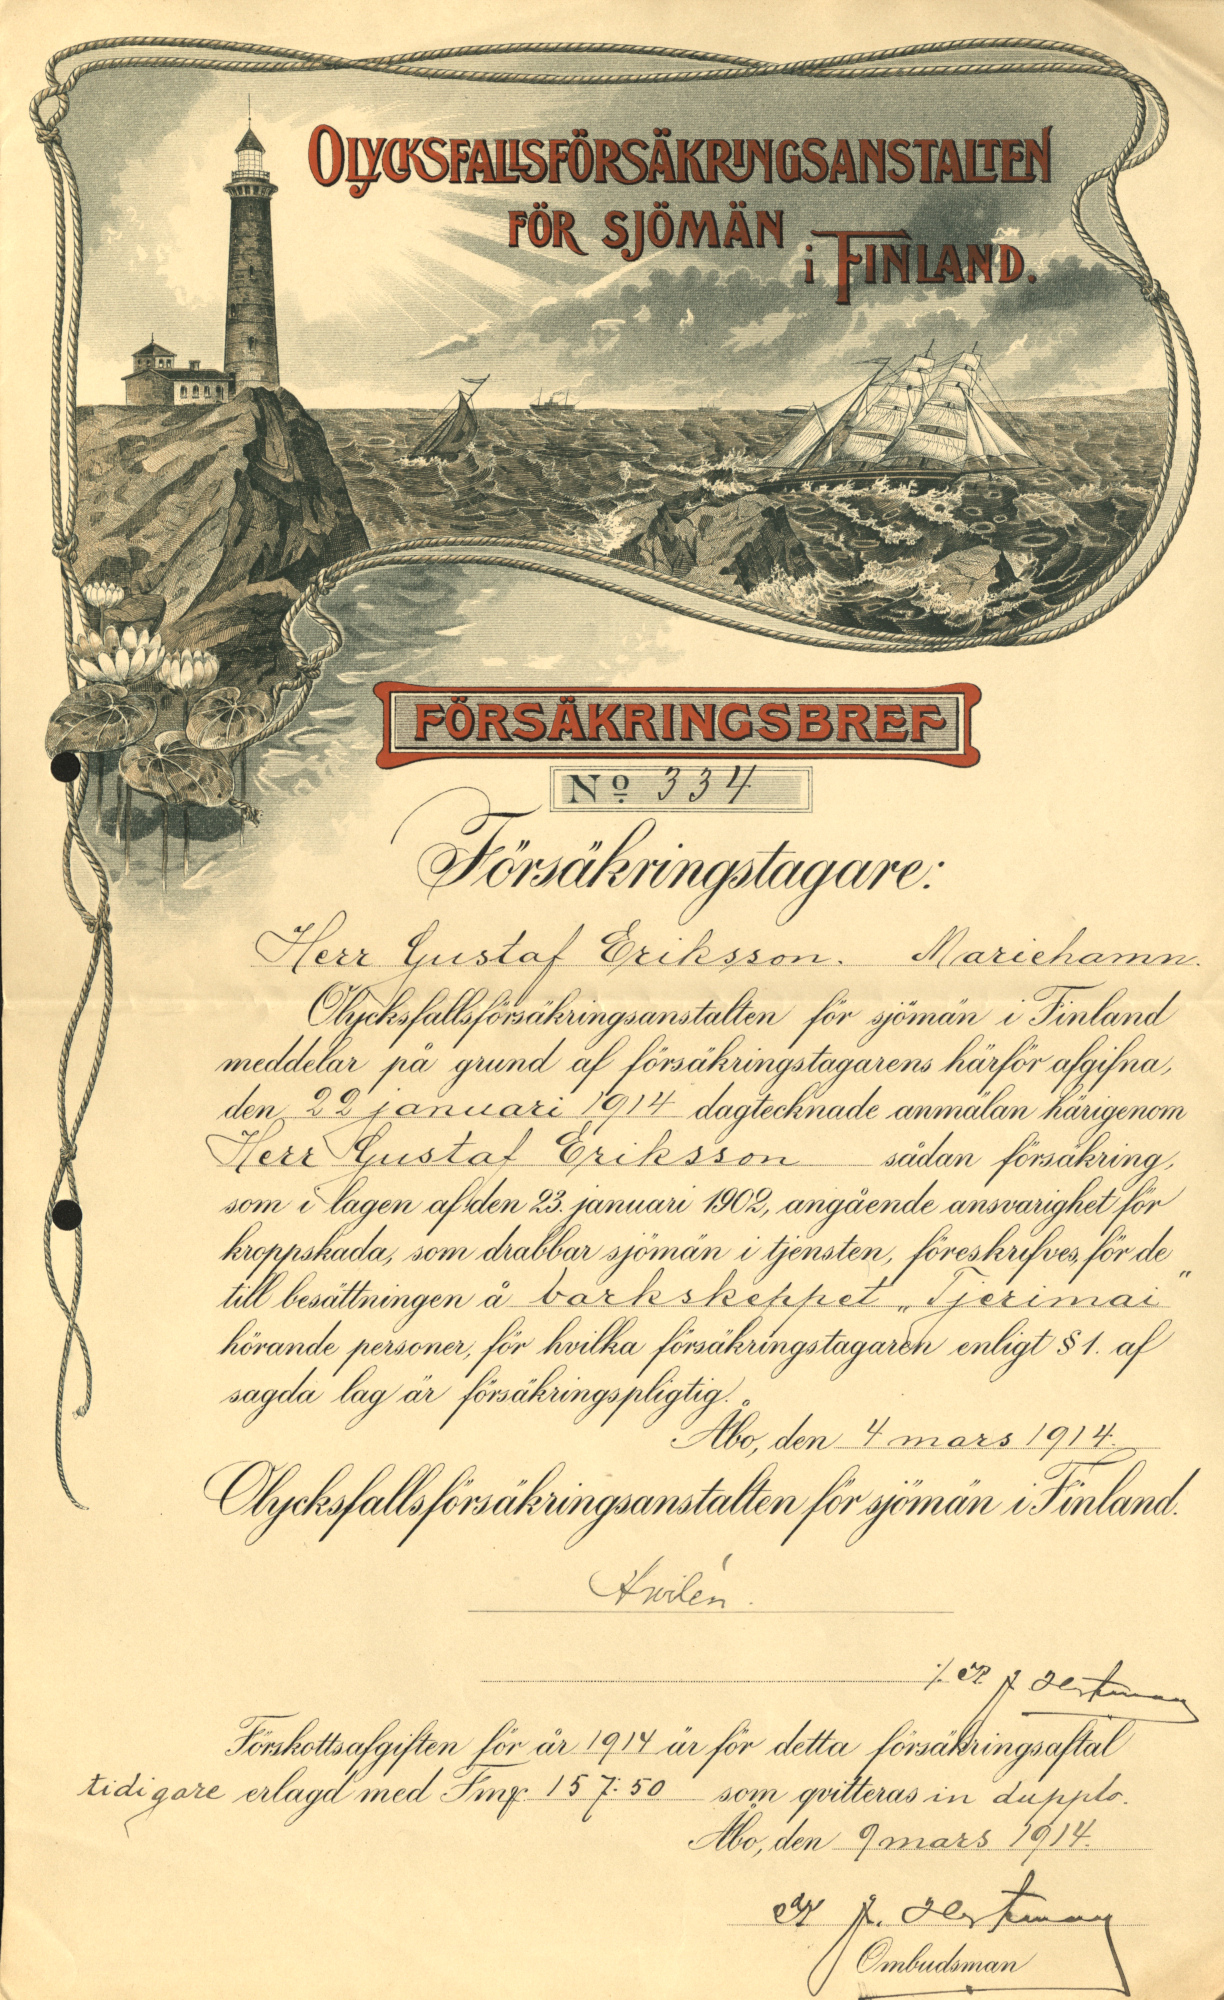 OLYCKSFALLSFÖRSÄKRINGSANSTALTEN
FÖR SJÖMÄN
i FINLAND.
FÖRSÄKRINGSBREF
No 334
Försäkringstagare:
Herr Gustaf Eriksson. Mariehamn.
Olycksfallsförsäkringsanstalten för sjömän i Finland
meddelar på grund af försäkringstagarens härför afgifna,
den 22 januari 1914 dagtecknade anmälan härigenom
Herr Gustaf Eriksson sådan försäkring,
som i lagen af den 23. januari 1902, angående ansvarighet för
kroppskada, som drabbar sjömän i tjensten, föreskrifves, för de
till besättningen å barkskeppet „Tjerimai"
hörande personer, för hvilka försäkringstagaren enligt § 1. af
sagda lag är försäkringspligtig.
Åbo, den 4 mars 1914.
Olycksfallsförsäkringsanstalten för sjömän i Finland.
Förskottsafgiften för år 1914 är för detta försäkringsaftal
tidigare erlagd med Fmk 157:50 som qvitteras in dupplo.
Åbo, den 9 mars 1914.
Ombudsman